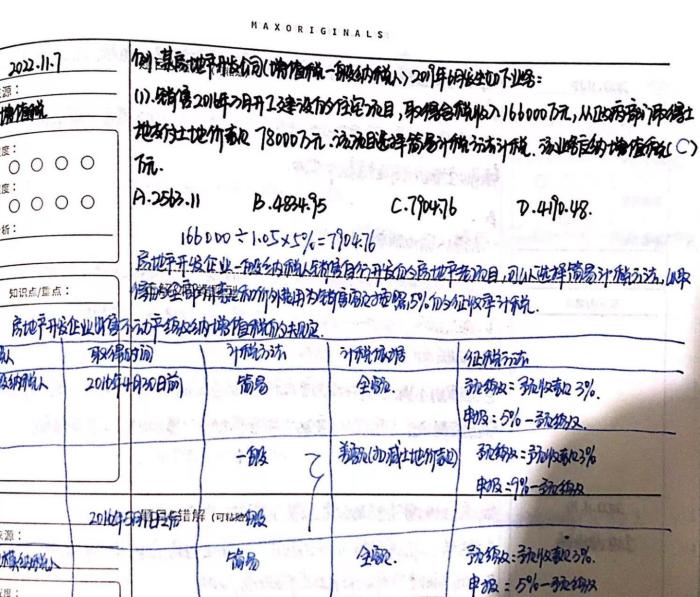 MAXORIGINALS
2022.11.7
例:某房地产开发公司(增值税一般纳税人)2019年6月发生如下业务:
源:
(1).销售2016年2月开工建设的住宅项目,取得含税收入166000万元,从政府部门取得土
增值税
地支付土地价款78000万元.该项目选择简易计税方法计税.该业务应纳增值税(C)
度:
万元.
A.2563.11 B.4834.95 C.7904.76 D.4190.48.
度:
析:
166000÷1.05×5%=7904.76
房地产开发企业一般纳税人销售自行开发的房地产老项目,可以选择简易计税方法,以取
知识点/重点:
得的全部价款和价外费用为销售额,按照5%的征收率计税.
房地产开发企业销售不动产缴纳增值税的规定
人 取得时间 计税方法 计税依据 征税方法
般纳税人 2016年4月30日前 简易 全额. 预缴=预收款3%.
申报=5%-预缴
一般 差额(扣减土地价款) 预缴=预收款3%
申报=9%-预缴
2016年5月1日后 错解(可粘贴 一般
来源:
规模纳税人 简易 全额. 预缴=预收款3%.
申报=5%-预缴
度: